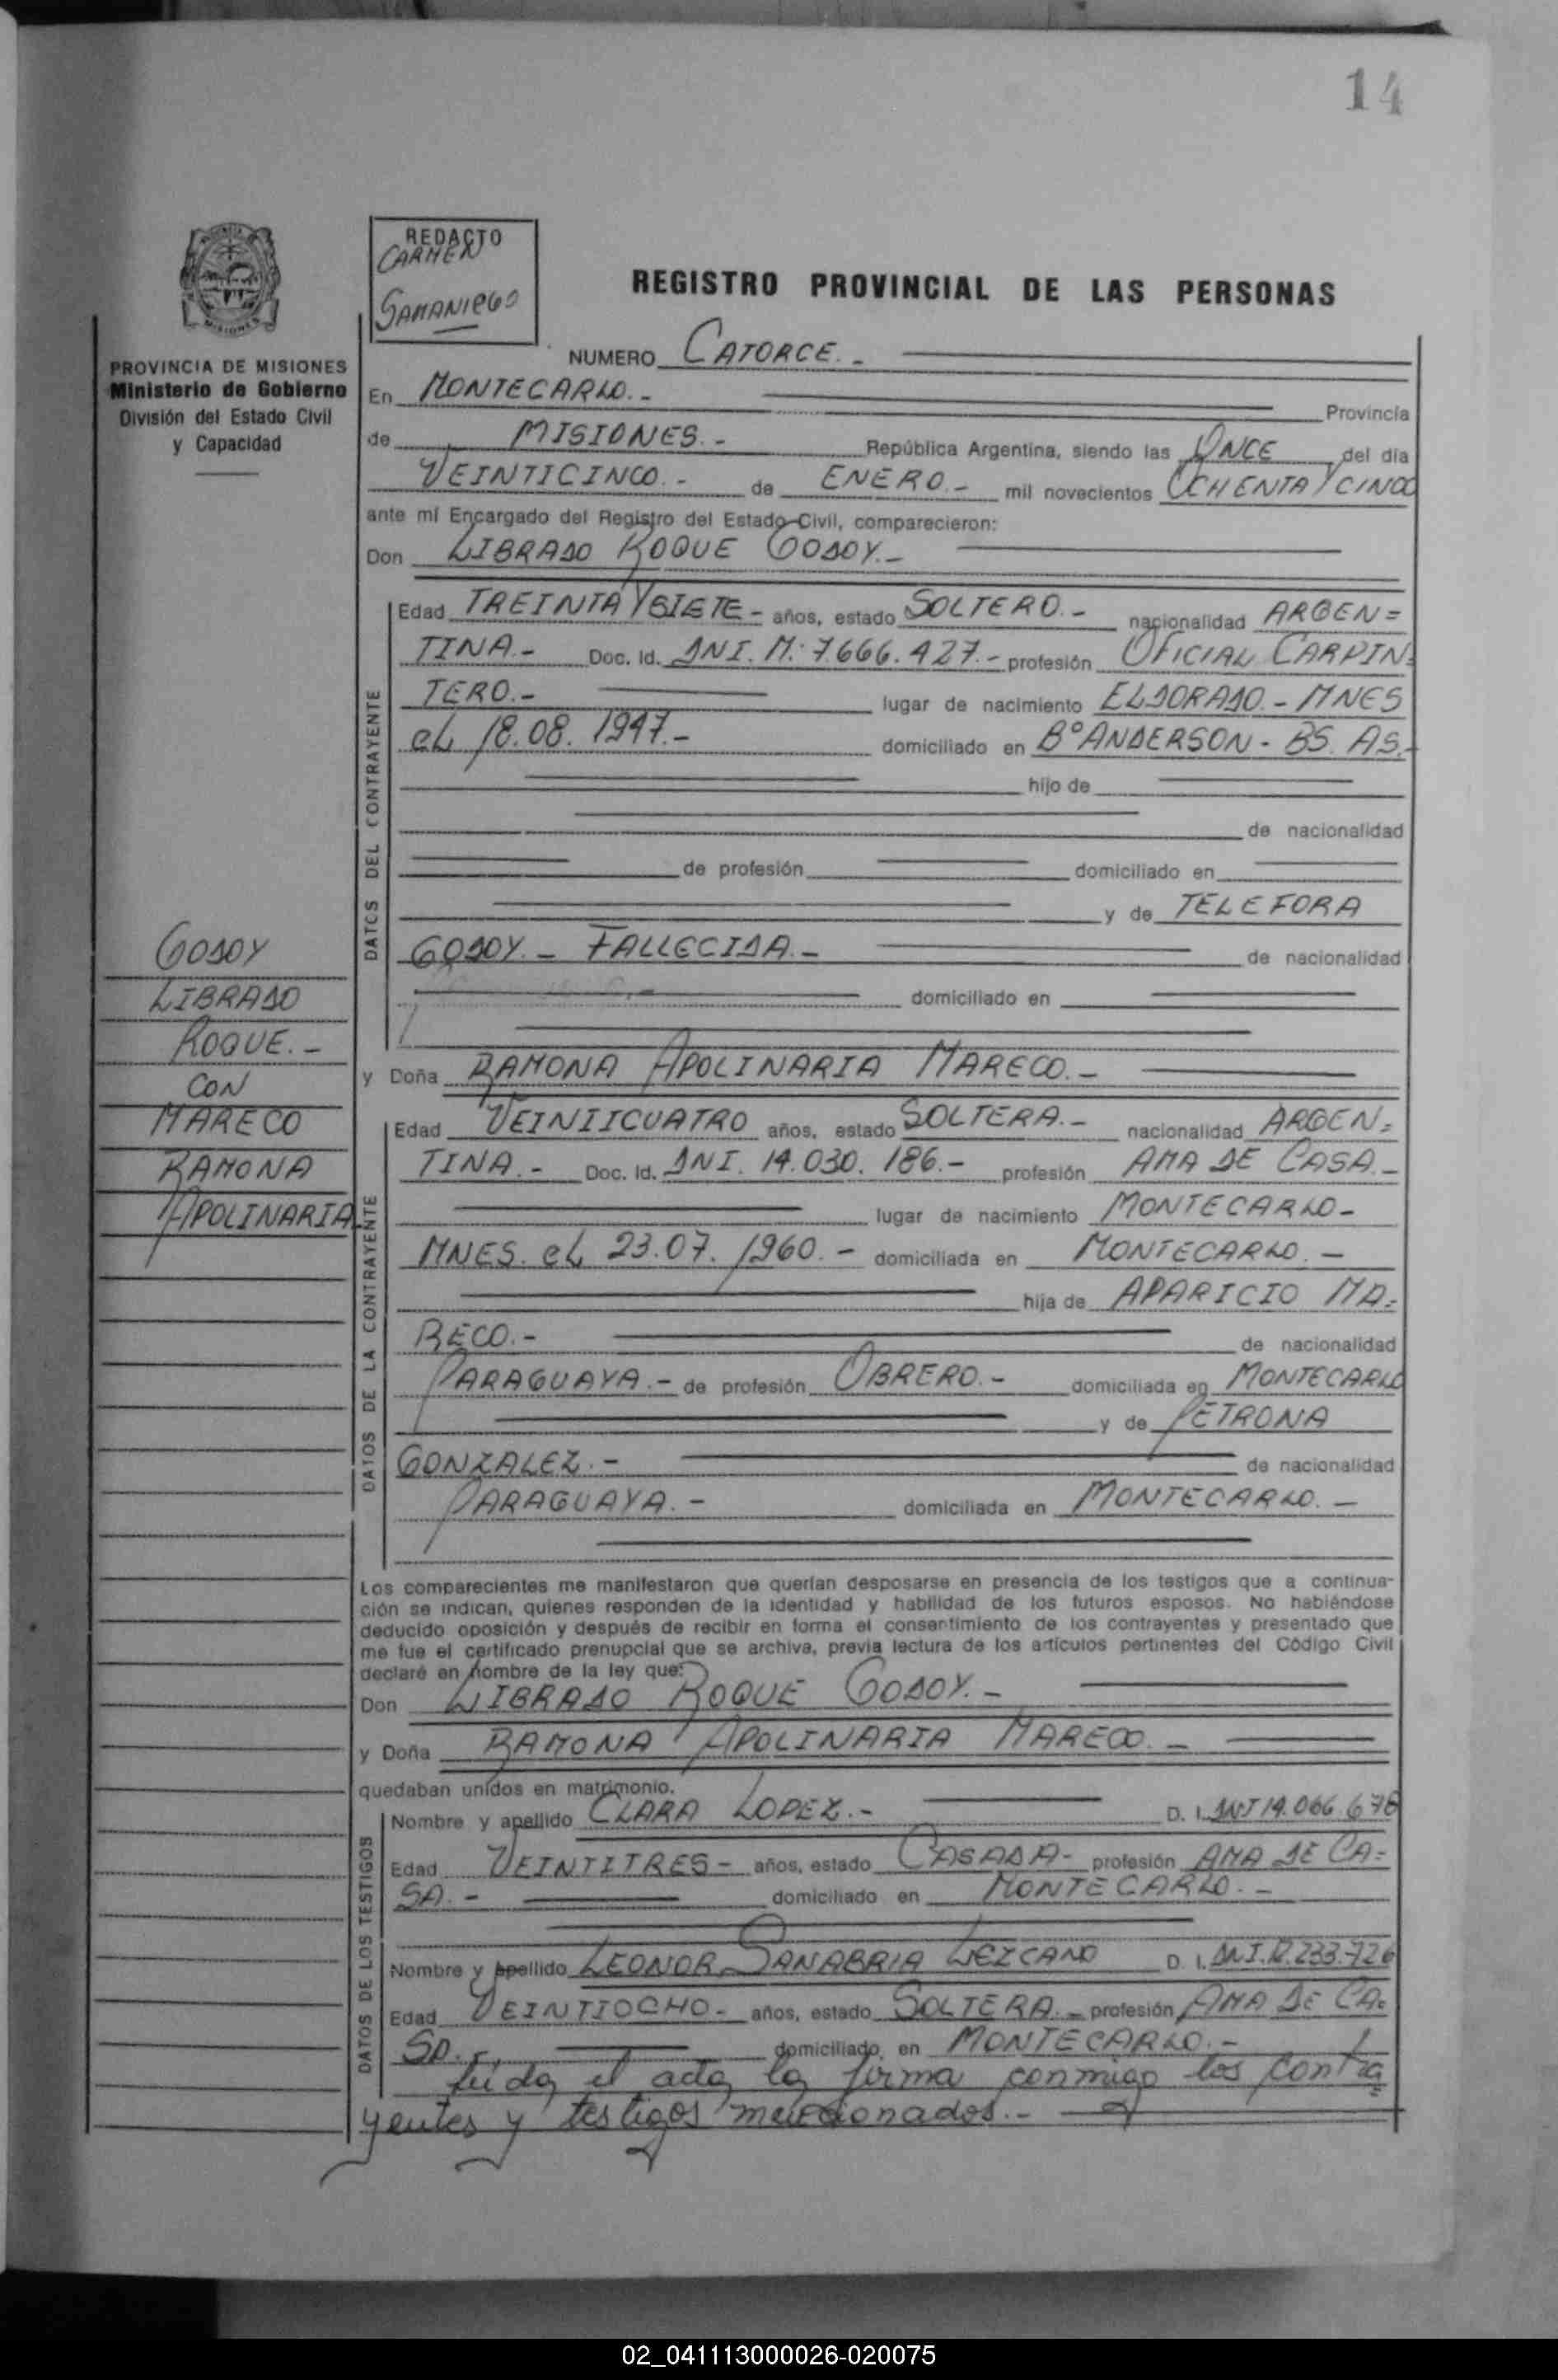 14
REDACTO
CARMEN
SAMANIEGO
REGISTRO PROVINCIAL DE LAS PERSONAS
PROVINCIA DE MISIONES
Ministerio de Gobierno
División del Estado Civil
y Capacidad
NUMERO CATORCE.-
En MONTECARLO.- Provincia
de MISIONES.- República Argentina, siendo las ONCE del día
VEINTICINCO.- de ENERO.- mil novecientos OCHENTA Y CINCO
ante mí Encargado del Registro del Estado Civil, comparecieron:
Don LIBRADO ROQUE GODOY.-
GODOY
LIBRADO
ROQUE.-
CON
MARECO
RAMONA
APOLINARIA
DATOS DEL CONTRAYENTE
Edad TREINTA Y SIETE- años, estado SOLTERO.- nacionalidad ARGEN=
TINA.- Doc. Id. DNI. M: 7.666.427.- profesión OFICIAL CARPIN=
TERO.- lugar de nacimiento ELDORADO.- MNES
el 18.08.1947.- domiciliado en Bº ANDERSON - BS. AS.-
hijo de
de nacionalidad
de profesión domiciliado en
y de TELEFORA
GODOY.- FALLECIDA.- de nacionalidad
domiciliado en
y Doña RAMONA APOLINARIA MARECO.-
DATOS DE LA CONTRAYENTE
Edad VEINTICUATRO años, estado SOLTERA.- nacionalidad ARGEN=
TINA.- Doc. Id. DNI. 14.030.186.- profesión AMA DE CASA.-
lugar de nacimiento MONTECARLO-
MNES. el 23.07.1960.- domiciliada en MONTECARLO.-
hija de APARICIO MA=
RECO.- de nacionalidad
PARAGUAYA.- de profesión OBRERO.- domiciliada en MONTECARLO
y de PETRONA
GONZALEZ.- de nacionalidad
PARAGUAYA.- domiciliada en MONTECARLO.-
Los comparecientes me manifestaron que querían desposarse en presencia de los testigos que a continua-
ción se indican, quienes responden de la identidad y habilidad de los futuros esposos. No habiéndose
deducido oposición y después de recibir en forma el consentimiento de los contrayentes y presentado que
me fue el certificado prenupcial que se archiva, previa lectura de los artículos pertinentes del Código Civil
declaré en nombre de la ley que:
Don LIBRADO ROQUE GODOY.-
y Doña RAMONA APOLINARIA MARECO.-
quedaban unidos en matrimonio.
DATOS DE LOS TESTIGOS
Nombre y apellido CLARA LOPEZ.- D. I. DNI 14.066.678
Edad VEINTITRES- años, estado CASADA- profesión AMA DE CA=
SA.- domiciliado en MONTECARLO.-
Nombre y apellido LEONOR SANABRIA LEZCANO D. I. DNI.12.233.726
Edad VEINTIOCHO- años, estado SOLTERA.- profesión AMA DE CA=
SA.- domiciliado en MONTECARLO.-
leída el acta la firma conmigo los contra
yentes y testigos mencionados.-
02_041113000026-020075